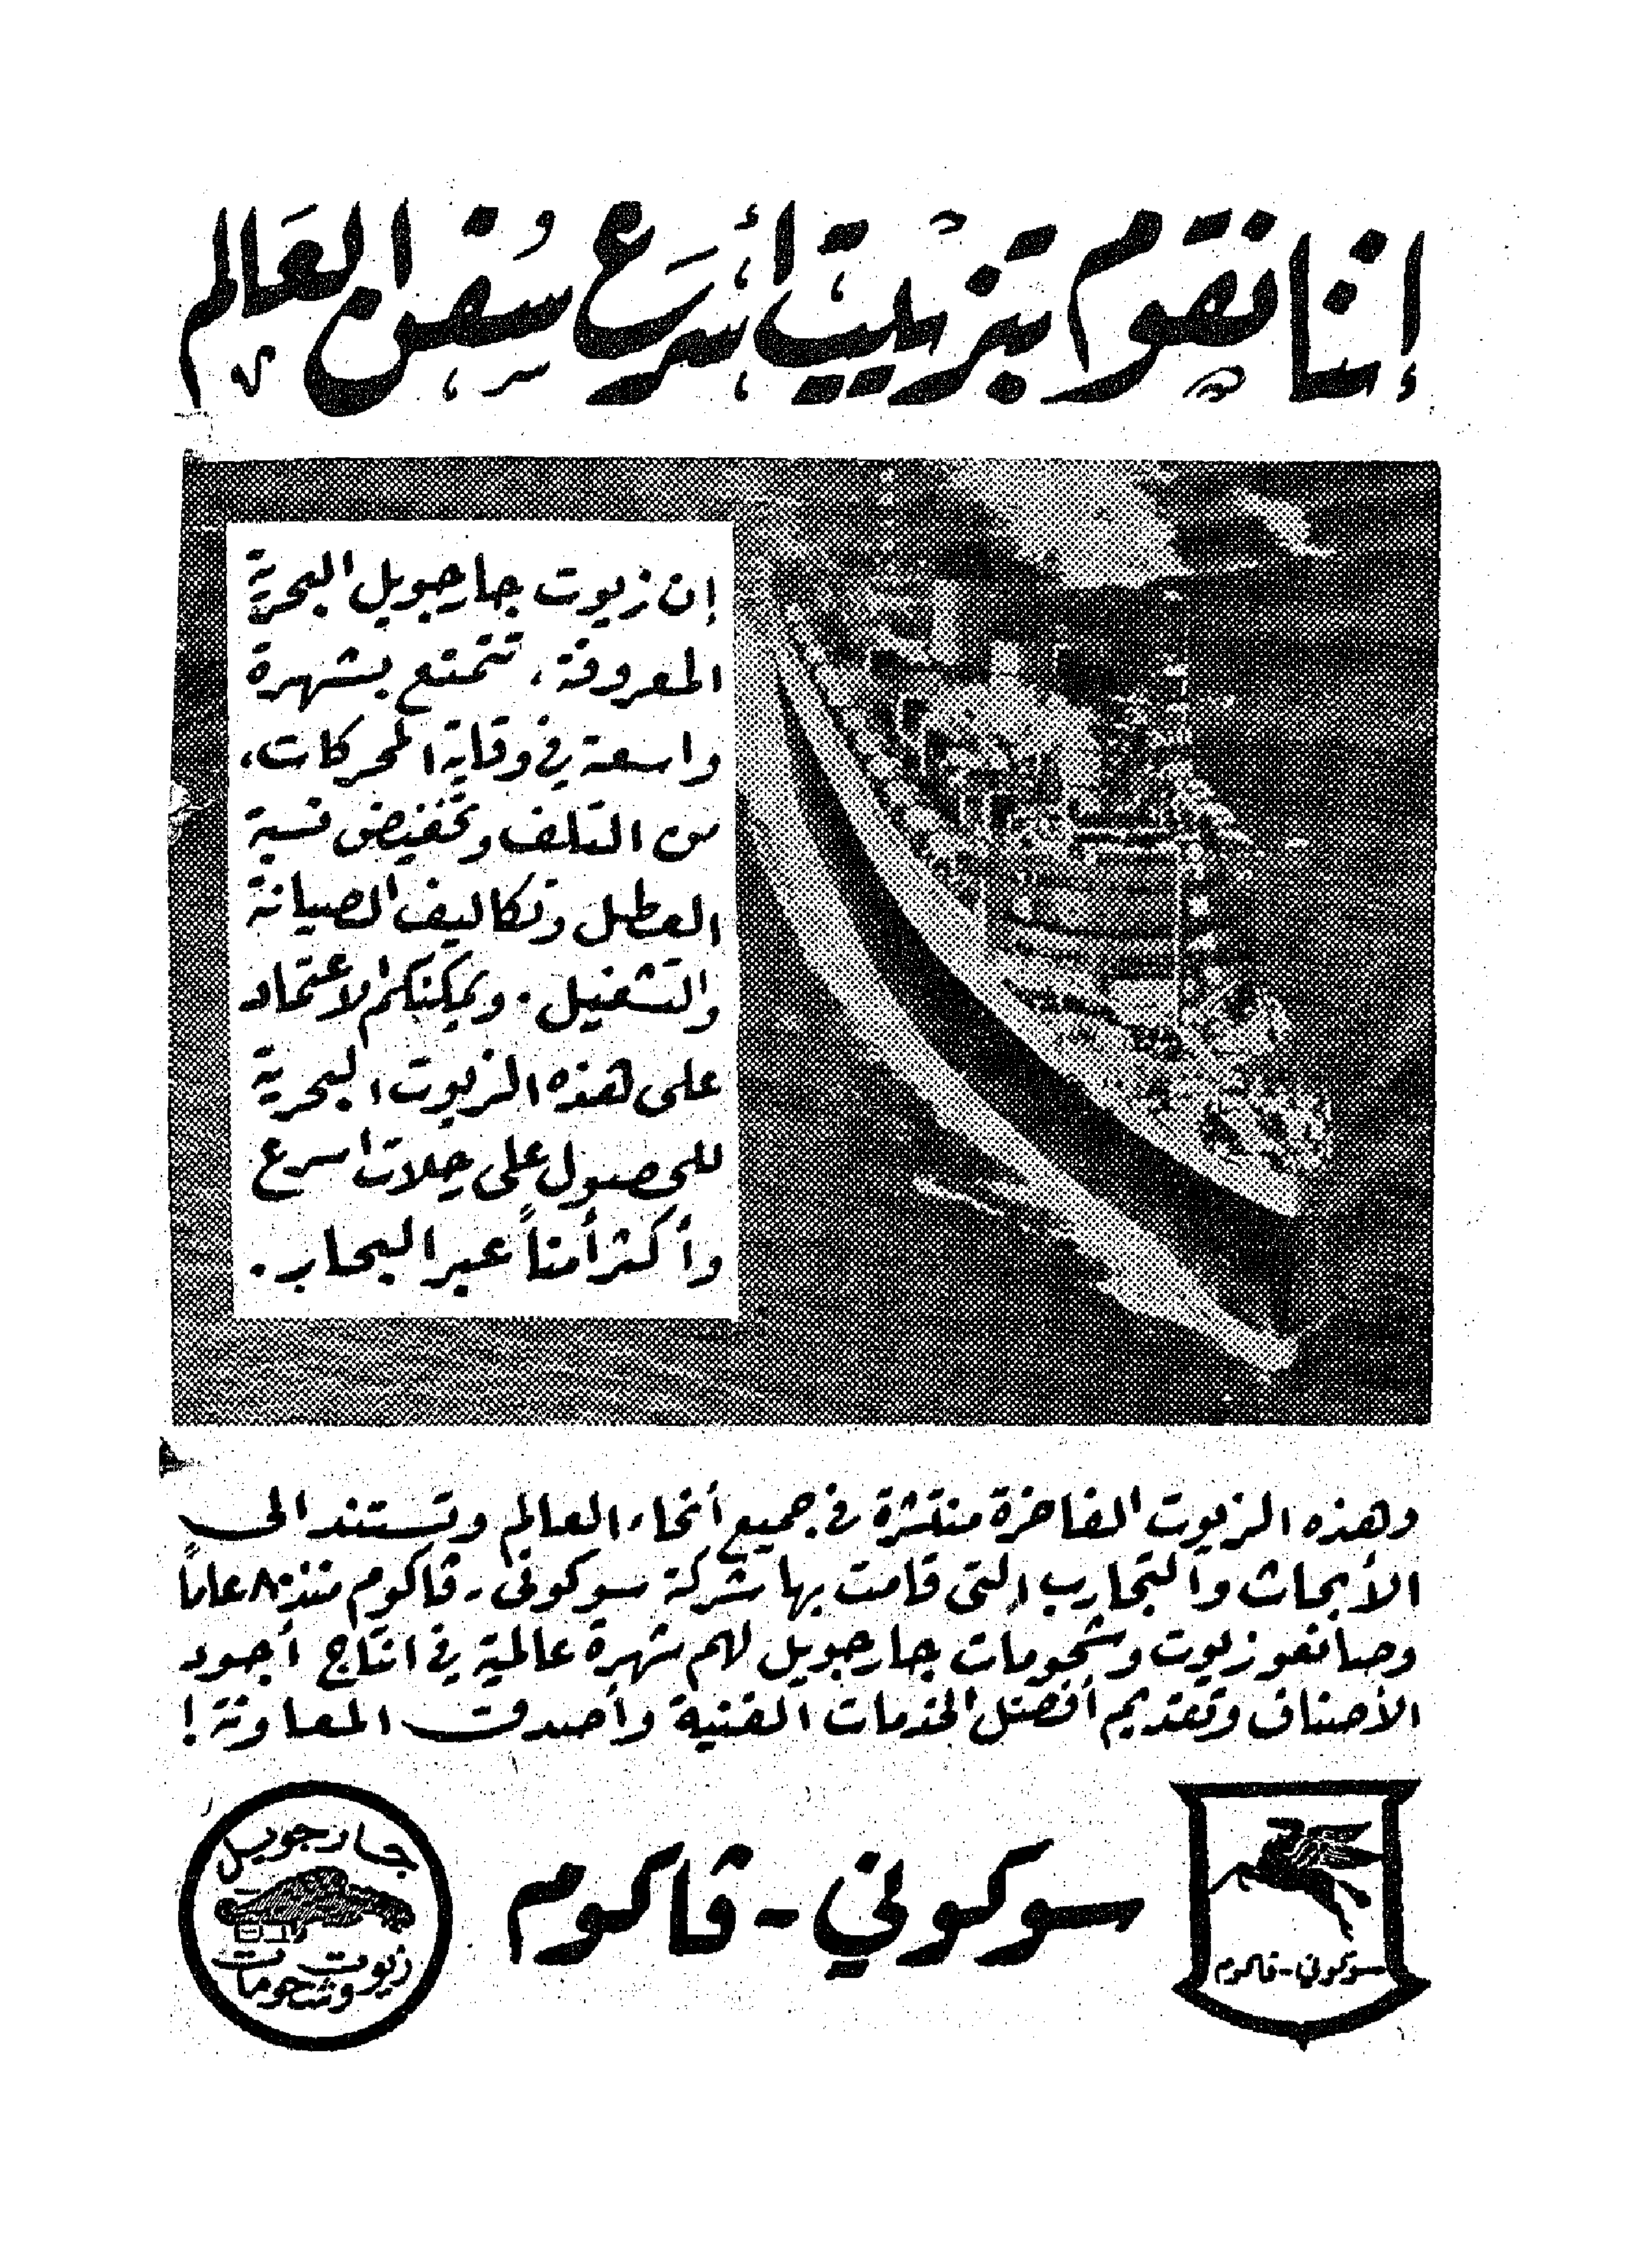 إننا نقوم بتزييت أسرع سفن العالم
إن زيوت جارجويل البحرية
المعروفة، تتمتع بشهرة
واسعة في وقاية المحركات،
من التلف وتخفيض نسبة
العطل وتكاليف الصيانة
والتشغيل. ويمكنكم الاعتماد
على هذه الزيوت البحرية
للحصول على رحلات اسرع
وأكثر أمناً عبر البحار.
وهذه الزيوت الفاخرة منتشرة في جميع أنحاء العالم وتستند الى
الأبحاث والتجارب التي قامت بها شركة سوكوني - ڤاكوم منذ ٨٠ عاماً
وصانعو زيوت وشحومات جارجويل لهم شهرة عالمية في انتاج أجود
الأصناف وتقديم أفضل الخدمات الفنية وأصدق المعاونة!
سوكوني - ڤاكوم
سوكوني - ڤاكوم
جارجويل
زيوت
وشحومات